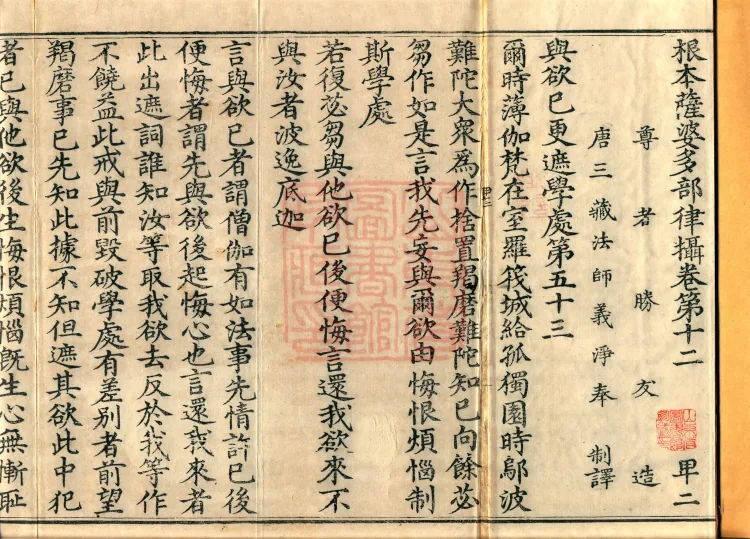 根本薩婆多部律攝卷第十二 甲二
尊者勝友造
唐三藏法師義淨奉 制譯
與欲已更遮學處第五十三
爾時薄伽梵在室羅筏城給孤獨園時鄔波
難陀大衆爲作捨置羯磨難陀知已向餘苾
芻作如是言我先妄與爾欲由悔恨煩惱制
斯學處
若復苾芻與他欲已後便悔言還我欲來不
與汝者波逸底迦
言與欲已者謂僧伽有如法事先情許已後
便悔者謂先與欲後起悔心也言還我來者
此出遮詞誰知汝等取我欲去反於我等作
不饒益此戒與前毀破學處有差别者前望
羯磨事已先知此據不知但遮其欲此中犯
者已與他欲後生悔恨煩惱旣生心無慚耻